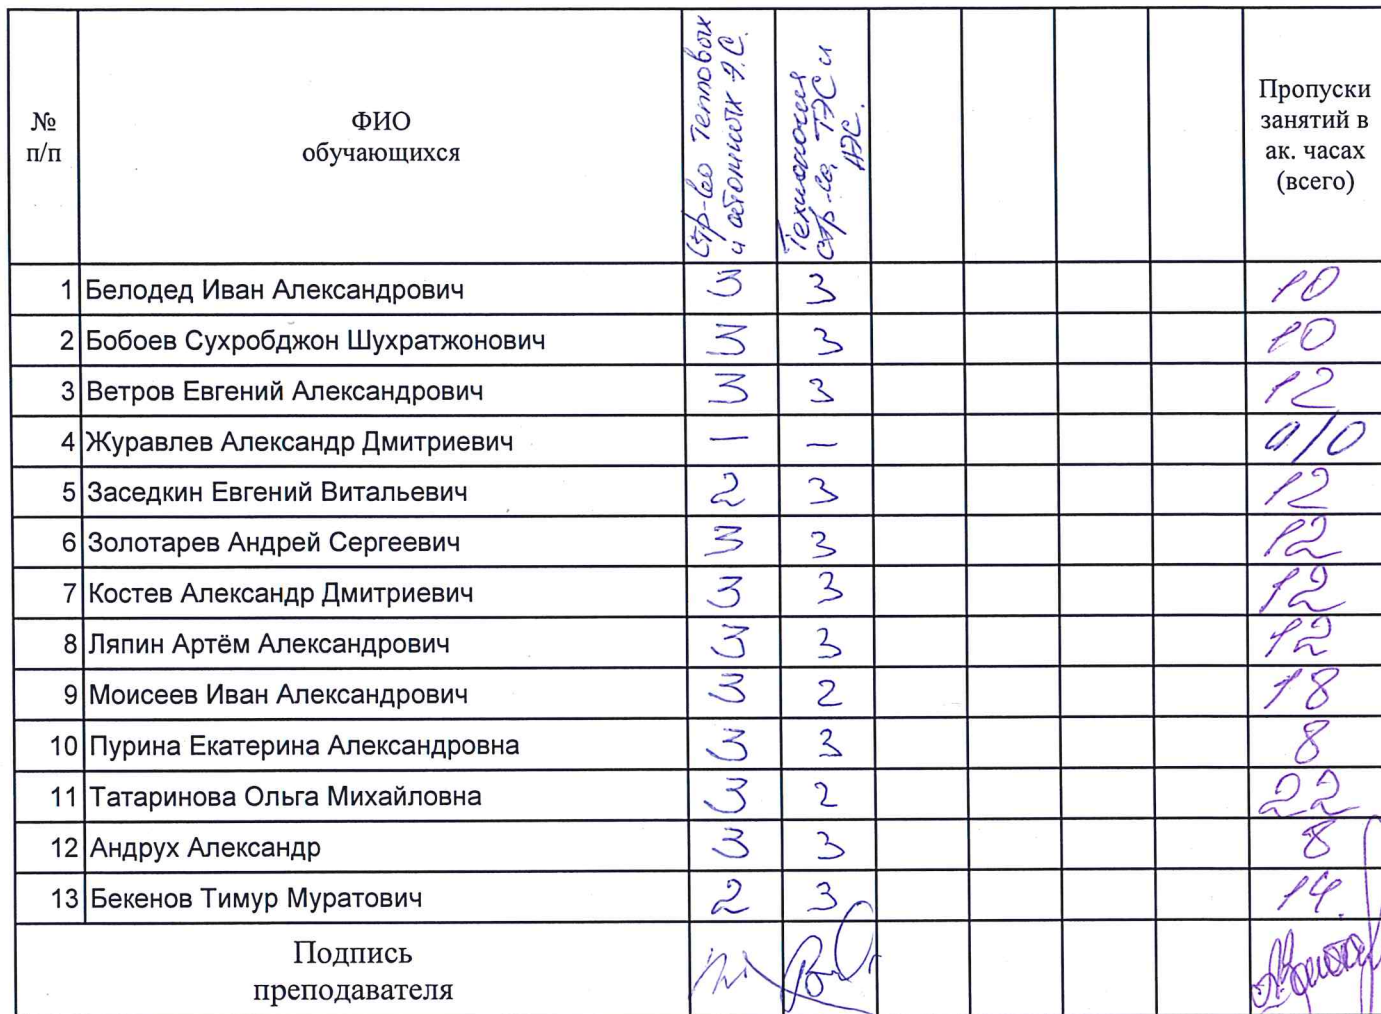 № п/п
ФИО обучающихся
Стр-во Тепловых и атомных Э.С.
Технология стр-ва ТЭС и АЭС.
Пропуски занятий в ак. часах (всего)
1 Белодед Иван Александрович 3 3 10
2 Бобоев Сухробджон Шухратжонович 3 3 10
3 Ветров Евгений Александрович 3 3 12
4 Журавлев Александр Дмитриевич — — а/о
5 Заседкин Евгений Витальевич 2 3 12
6 Золотарев Андрей Сергеевич 3 3 12
7 Костев Александр Дмитриевич 3 3 12
8 Ляпин Артём Александрович 3 3 12
9 Моисеев Иван Александрович 3 2 18
10 Пурина Екатерина Александровна 3 3 8
11 Татаринова Ольга Михайловна 3 2 22
12 Андрух Александр 3 3 8
13 Бекенов Тимур Муратович 2 3 14.
Подпись
преподавателя